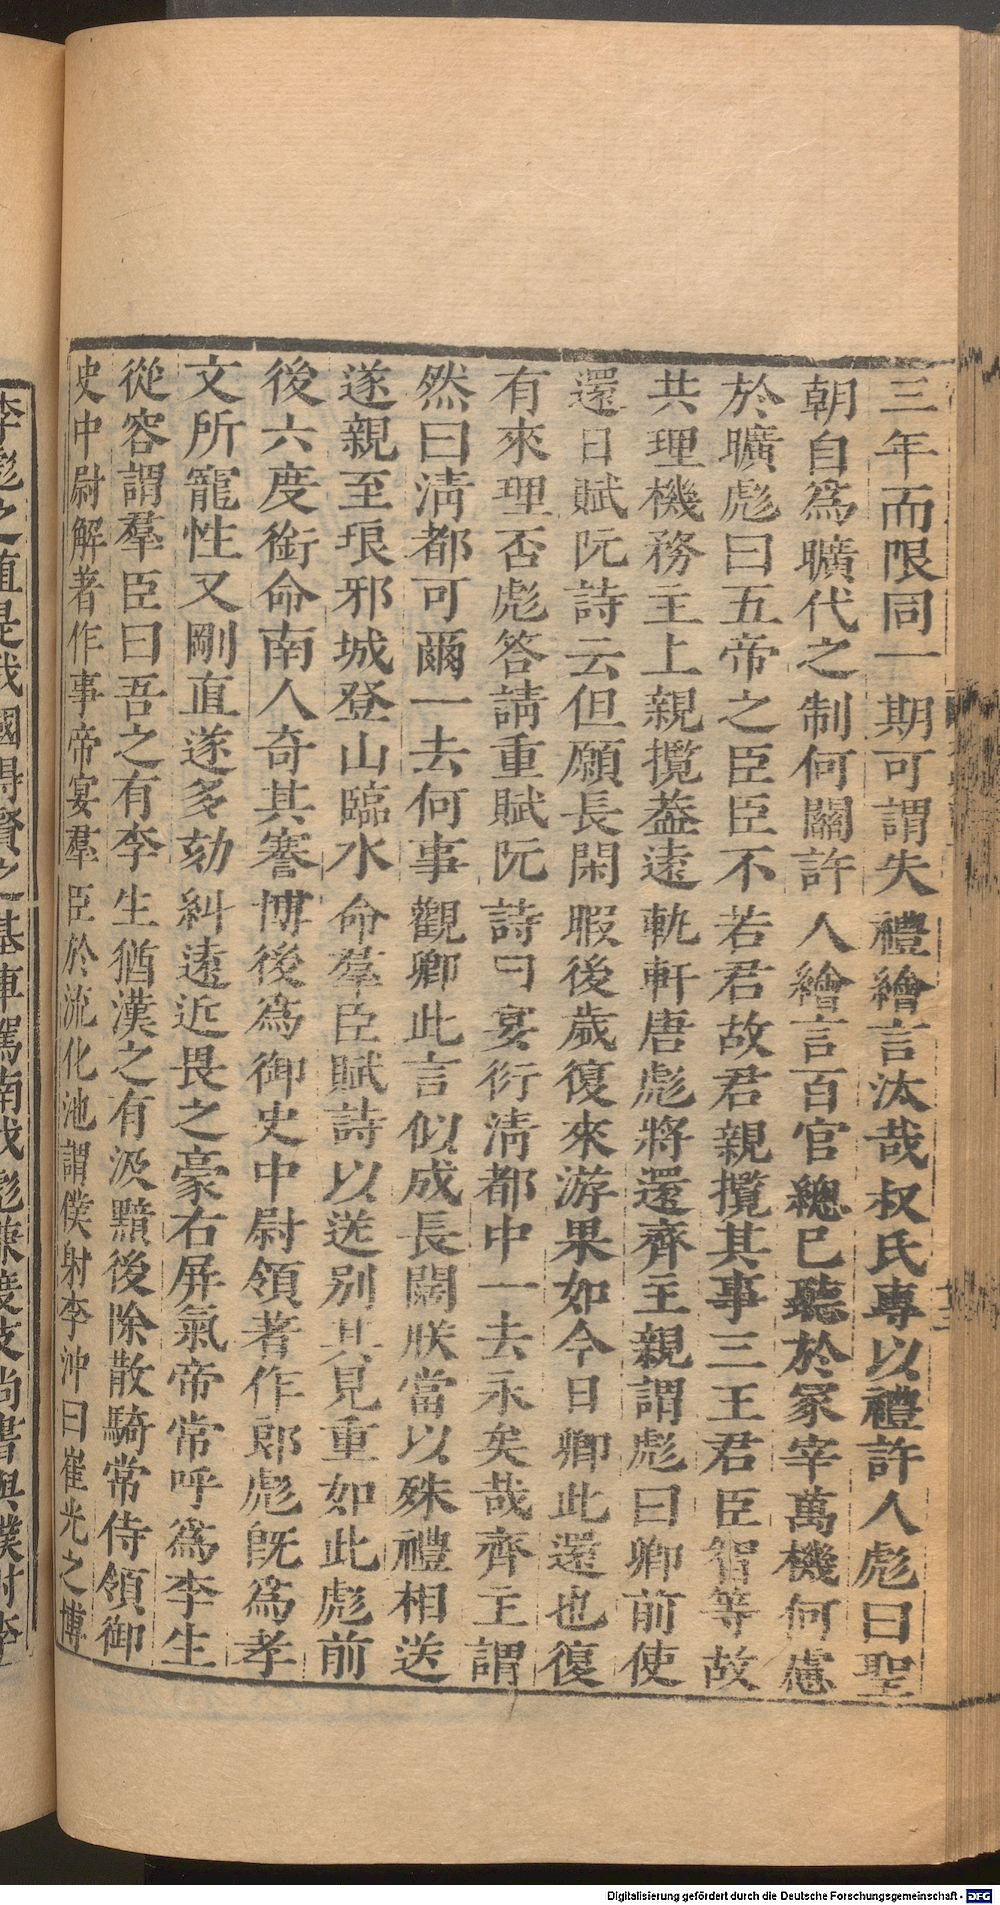 三年而限同一期可謂失禮繪言汰哉叔氏專以禮許人彪曰聖
朝自爲曠代之制何關許人繪言百官總已聽於冢宰萬機何慮
於曠彪曰五帝之臣臣不若君故君親攬其事三王君臣智等故
共理機務主上親攬蓋遠軌軒唐彪將還齊主親謂彪曰卿前使
還日賦阮詩云但願長閑暇後歲復來游果如今日卿此還也復
有來理否彪答請重賦阮詩曰宴衍清都中一去永矣哉齊主謂
然曰清都可爾一去何事觀卿此言似成長闊朕當以殊禮相送
遂親至琅邪城登山臨水命羣臣賦詩以送別其見重如此彪前
後六度銜命南人奇其謇博後爲御史中尉領著作郎彪旣爲孝
文所寵性又剛直遂多劾糾遠近畏之豪右屏氣帝常呼爲李生
從容謂羣臣曰吾之有李生猶漢之有汲黯後除散騎常侍領御
史中尉解著作事帝宴羣臣於流化池謂僕射李沖曰崔光之博
李彪之直是我國得賢之基車駕南伐彪兼度支尚書與僕射李
Digitalisierung gefördert durch die Deutsche Forschungsgemeinschaft - DFG